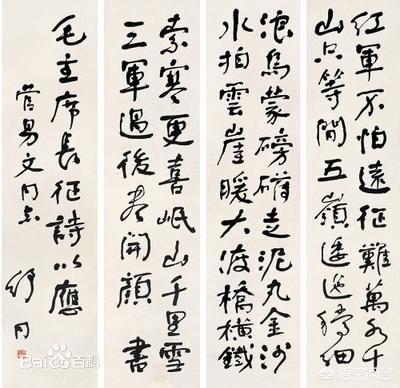 紅軍不怕遠征難萬水千
山只等閒五嶺逶迤騰細
浪烏蒙磅礴走泥丸金沙
水拍雲崖暖大渡橋橫鐵
索寒更喜岷山千里雪
三軍過後尽開顏 書
毛主席長征詩以應
易文同志
舒同
Bai百科
悟空问答